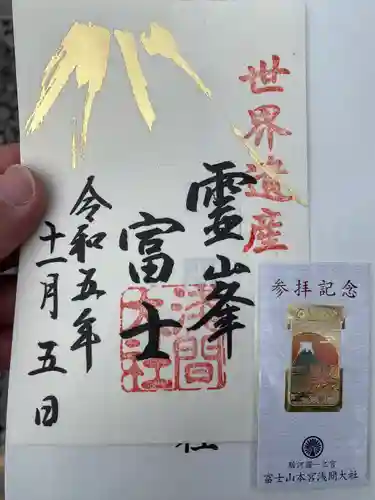 世界遺産
靈峯
富士
淺間
大社
令和五年
十一月五日
社
参拝記念
駿河國一之宮
富士山本宮浅間大社